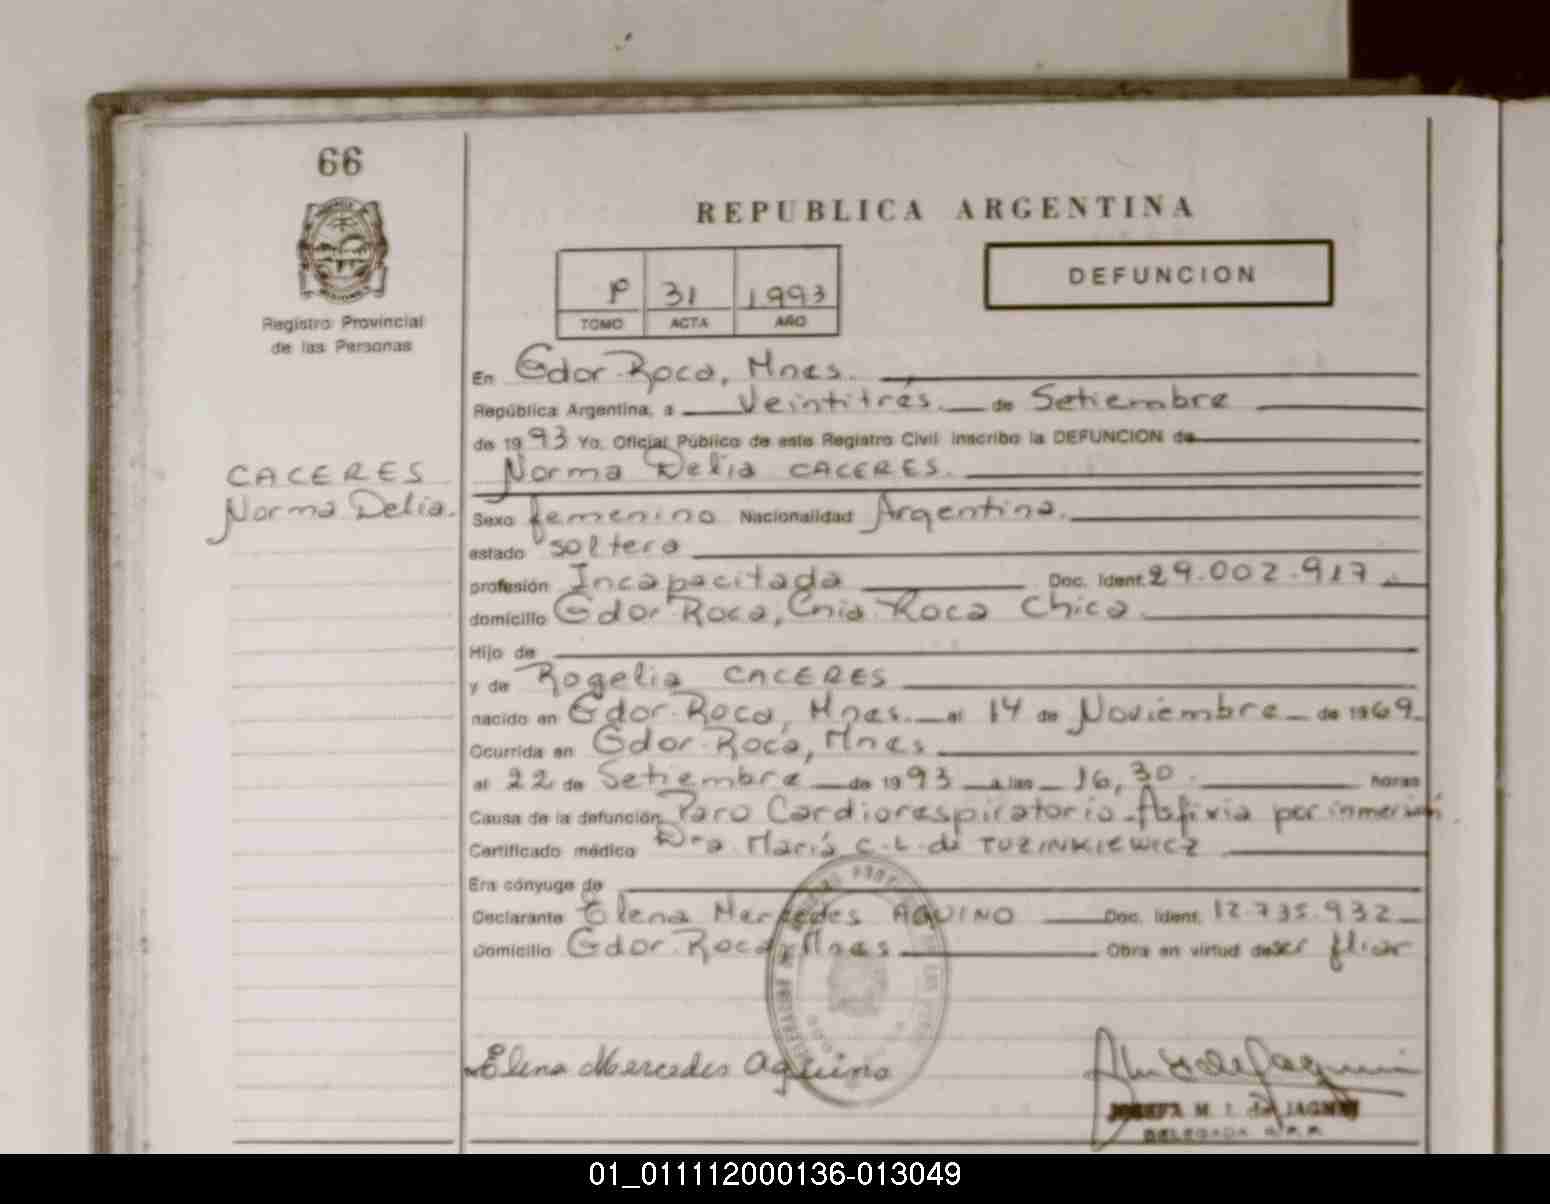 66
Registro Provincial
de las Personas
REPUBLICA ARGENTINA
P 31 1993
TOMO ACTA AÑO
DEFUNCION
En Gdor. Roca, Mnes.
República Argentina, a Veintitrés de Setiembre
de 1993 Yo, Oficial Público de este Registro Civil inscribo la DEFUNCION de
CACERES
Norma Delia.
Norma Delia CACERES.
Sexo femenino Nacionalidad Argentina.
estado soltera
profesión Incapacitada Doc. Ident. 29.002.917
domicilio Gdor Roca, Cnia. Roca Chica
Hijo de
y de Rogelia CACERES
nacido en Gdor. Roca, Mnes. el 14 de Noviembre de 1969
Ocurrida en Gdor. Roca, Mnes
el 22 de Setiembre de 1993 a las 16,30 horas
Causa de la defunción Paro Cardiorespiratorio-Asfixia por inmersión.
Certificado médico Dra. María C. L. de TUZINKIEWICZ
Era cónyuge de
Declarante Elena Mercedes AQUINO Doc. Ident. 12.735.932
Domicilio Gdor. Roca Mnes Obra en virtud de ser fliar
Elena Mercedes Aquino
JOSEFA M. I. de
DELEGADA
01_011112000136-013049